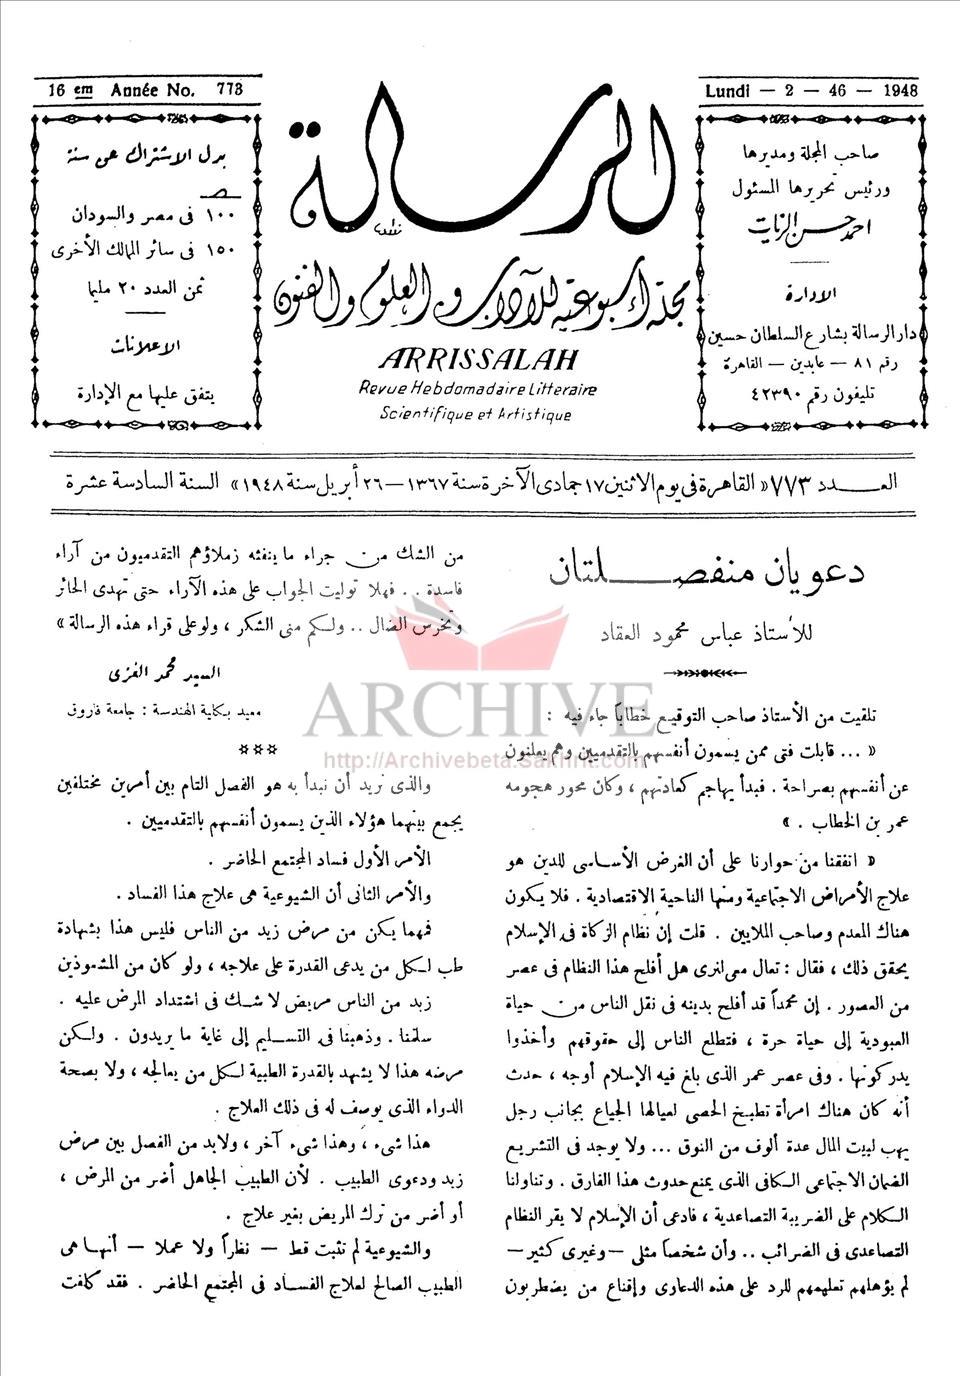 16 em Année No. 773
Lundi — 2 — 46 — 1948
بدل الاشتراك عن سنة
ص
١٠٠ فى مصر والسودان
١٥٠ فى سائر الممالك الأخرى
ثمن العدد ٢٠ مليما
الاعلانات
يتفق عليها مع الإدارة
الرسالة
مجلة أسبوعية للآداب والعلوم والفنون
ARRISSALAH
Revue Hebdomadaire Litteraire
Scientifique et Artistique
صاحب المجلة ومديرها
ورئيس تحريرها المسئول
احمد حسن الزيات
الادارة
دار الرسالة بشارع السلطان حسين
رقم ٨١ — عابدين — القاهرة
تليفون رقم ٤٢٣٩٠
العـــدد ٧٧٣ «القاهرة فى يوم الاثنين ١٧ جمادى الآخرة سنة ١٣٦٧ — ٢٦ أبريل سنة ١٩٤٨» السنة السادسة عشرة
دعويان منفصـــلتان
للأستاذ عباس محمود العقاد
تلقيت من الأستاذ صاحب التوقيع خطاباً جاء فيه :
« ... قابلت فتى ممن يسمون أنفسهم بالتقدميين وهم يعلنون
عن أنفسهم بصراحة . فبدأ يهاجم كعادتهم ، وكان محور هجومه
عمر بن الخطاب . »
« اتفقنا من حوارنا على أن الغرض الأساسى للدين هو
علاج الأمراض الاجتماعية ومنها الناحية الاقتصادية . فلا يكون
هناك المعدم وصاحب الملايين . قلت إن نظام الزكاة فى الإسلام
يحقق ذلك ، فقال : تعال معى لنرى هل أفلح هذا النظام فى عصر
من العصور . إن محمداً قد أفلح بدينه فى نقل الناس من حياة
العبودية إلى حياة حرة ، فتطلع الناس إلى حقوقهم وأخذوا
يدركونها . وفى عصر عمر الذى بلغ فيه الإسلام أوجه ، حدث
أنه كان هناك امرأة تطبخ الحصى لعيالها الجياع بجانب رجل
يهب لبيت المال عدة ألوف من النوق ... ولا يوجد فى التشريع
الضمان الاجتماعى الكافى الذى يمنع حدوث هذا الفارق . وتناولنا
الكلام على الضريبة التصاعدية ، فادعى أن الإسلام لا يقر النظام
التصاعدى فى الضرائب .. وأن شخصاً مثلى — وغيرى كثير —
لم يؤهلهم تعليمهم للرد على هذه الدعاوى وإقناع من يضطربون
من الشك من جراء ما ينفثه زملاؤهم التقدميون من آراء
فاسدة .. فهلا توليت الجواب على هذه الآراء حتى تهدى الحائر
وتخرس الضال .. ولكم منى الشكر ، ولو على قراء هذه الرسالة »
السيد محمد الغزى
معيد بكلية الهندسة : جامعة فاروق
***
والذى نريد أن نبدأ به هو الفصل التام بين أمرين مختلفين
يجمع بينهما هؤلاء الذين يسمون أنفسهم بالتقدميين .
الأمر الأول فساد المجتمع الحاضر .
والأمر الثانى أن الشيوعية هى علاج هذا الفساد .
فمهما يكن من مرض زيد من الناس فليس هذا بشهادة
طب لكل من يدعى القدرة على علاجه ، ولو كان من المشعوذين
زيد من الناس مريض لا شك فى اشتداد المرض عليه .
سلمنا . وذهبنا فى التسليم إلى غاية ما يريدون . ولكن
مرضه هذا لا يشهد بالقدرة الطبية لكل من يعالجه ، ولا بصحة
الدواء الذى يوصف له فى ذلك العلاج .
هذا شىء ، وهذا شىء آخر ، ولابد من الفصل بين مرض
زيد ودعوى الطبيب . لأن الطبيب الجاهل أضر من المرض ،
أو أضر من ترك المريض بغير علاج .
والشيوعية لم تثبت قط — نظراً ولا عملا — أنها هى
الطبيب الصالح لعلاج الفساد فى المجتمع الحاضر . فقد كانت
ARCHIVE
http://Archivebeta.Sakhrit.com